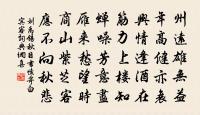 州遠雄無益
年高健亦衰
興情逢酒在
筋力上樓知
蟬噪芳意盡
雁來愁望時
商山紫芝客
應不向秋悲
劉禹錫秋日書懷寄白
賓客 詞典網